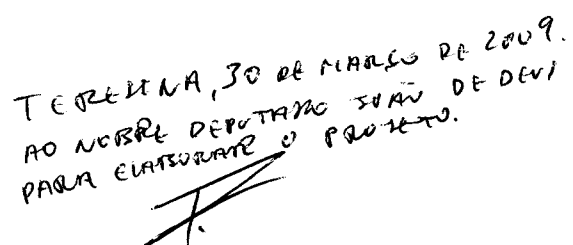 TERESINA, 30 DE MARÇO DE 2009.
AO NOBRE DEPUTADO JOÃO DE DEUS
PARA ELABORAR O PROJETO.